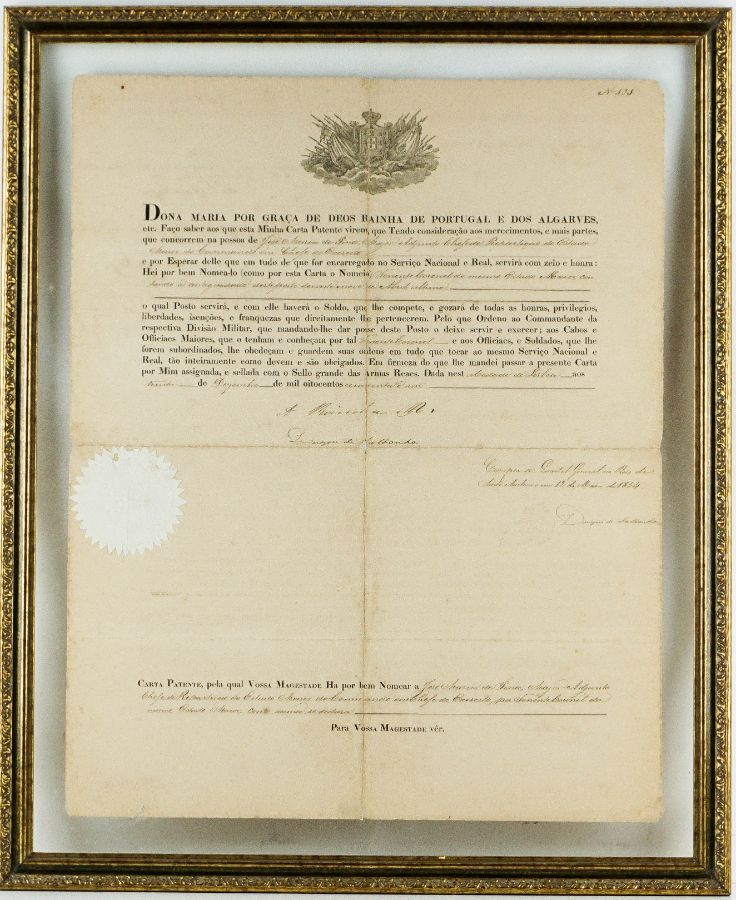 DONA MARIA POR GRAÇA DE DEOS RAINHA DE PORTUGAL E DOS ALGARVES,
etc. Faço saber aos que esta Minha Carta Patente virem, que Tendo consideração aos merecimentos, e mais partes,
que concorrem na pessoa de José Major Adjunto Chefe de Repartição do Estado
Maior do Commando em Chefe do Exercito
e por Esperar delle que em tudo de que for encarregado no Serviço Nacional e Real, servirá com zelo e honra:
Hei por bem Nomea-lo (como por esta Carta o Nomeio) Tenente Coronel do mesmo Estado Maior
de Abril ultimo
o qual Posto servirá, e com elle haverá o Soldo, que lhe compete, e gozará de todas as honras, privilegios,
liberdades, isenções, e franquezas que direitamente lhe pertencerem. Pelo que Ordeno ao Commandante da
respectiva Divisão Militar, que mandando-lhe dar posse deste Posto o deixe servir e exercer; aos Cabos e
Officiaes Maiores, que o tenham e conheçam por tal Tenente Coronel e aos Officiaes, e Soldados, que lhe
forem subordinados, lhe obedeçam e guardem suas ordens em tudo que tocar ao mesmo Serviço Nacional e
Real, tão inteiramente como devem e são obrigados. Em firmeza do que lhe mandei passar a presente Carta
por Mim assignada, e sellada com o Sello grande das Armas Reaes. Dada nest a Cidade de Lisboa aos
de Dezembro de mil oitocentos cincoenta e um
Duque de Saldanha
Cumpra-se Quartel General na Rua de
em 12 de 1854
Duque de Saldanha
CARTA PATENTE, pela qual VOSSA MAGESTADE Ha por bem Nomear a José Major Adjunto
Chefe de Repartição do Estado Maior do Commando em Chefe do Exercito, para Tenente Coronel do
mesmo Estado Maior como acima se declara
Para VOSSA MAGESTADE vêr.